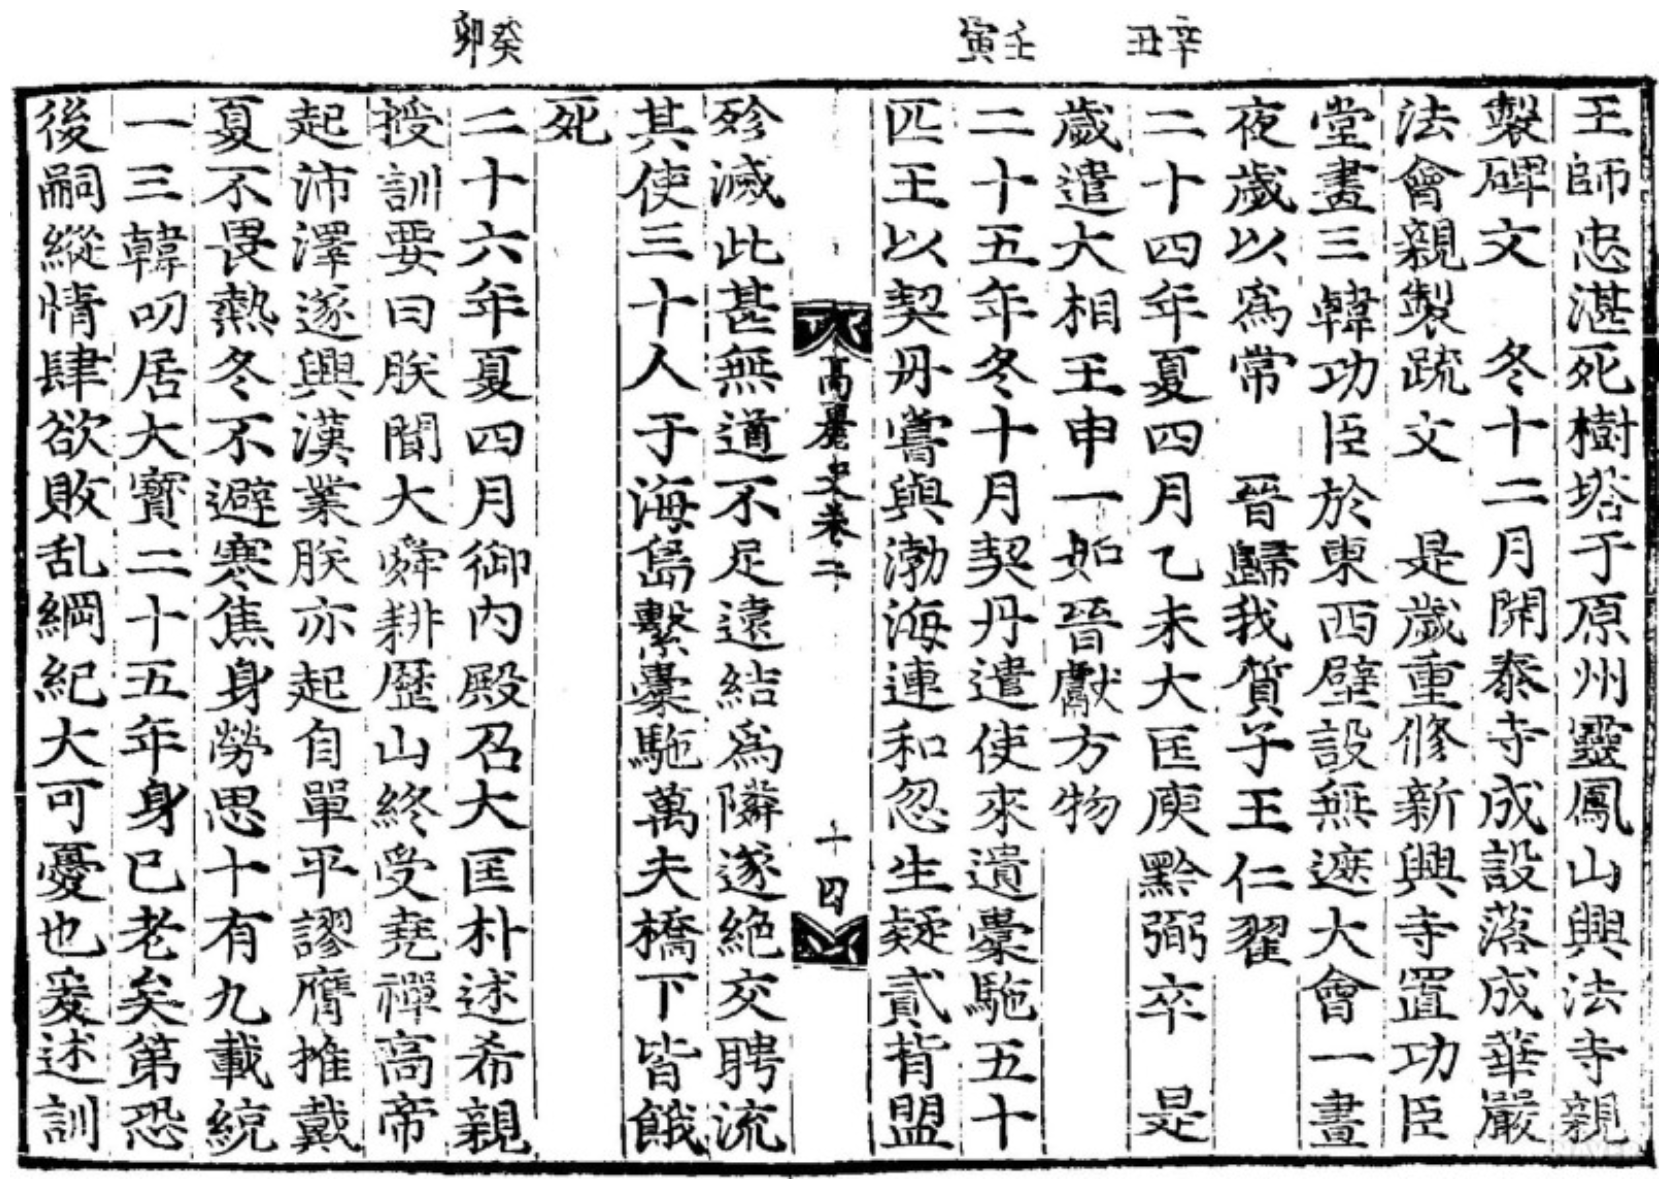 辛丑
壬寅
癸卯
王師忠湛死樹塔于原州靈鳳山興法寺親
製碑文　冬十二月開泰寺成設落成華嚴
法會親製疏文　是歲重修新興寺置功臣
堂畫三韓功臣於東西壁設無遮大會一晝
夜歲以爲常　晉歸我質子王仁翟
二十四年夏四月乙未大匡庾黔弼卒　是
歲遣大相王申一如晉獻方物
二十五年冬十月契丹遣使來遺橐駞五十
匹王以契丹嘗與渤海連和忽生疑貳背盟
高麗史卷二
十四
殄滅此甚無道不足遠結爲隣遂絶交聘流
其使三十人于海島繫橐駞萬夫橋下皆餓
死
二十六年夏四月御內殿召大匡朴述希親
授訓要曰朕聞大舜耕歷山終受堯禪高帝
起沛澤遂興漢業朕亦起自單平謬膺推戴
夏不畏熱冬不避寒焦身勞思十有九載統
一三韓叨居大寶二十五年身已老矣第恐
後嗣縱情肆欲敗乱綱紀大可憂也爰述訓